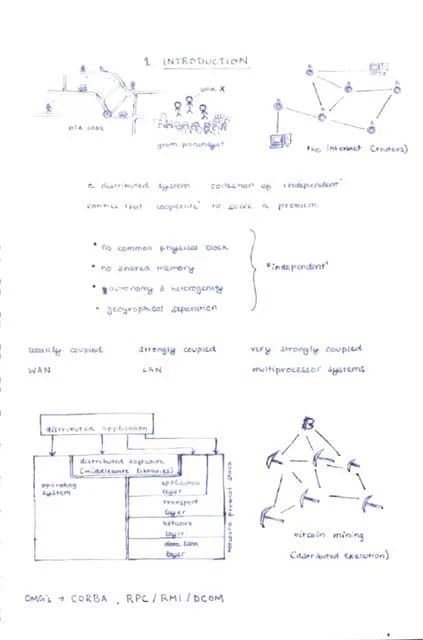 1 INTRODUCTION
ola cabs
gram panchayat
the internet (routers)
a distributed system collection of independent
entities that cooperate to solve a problem
• no common physical clock
• no shared memory
• autonomy & heterogenity
• geographical separation
"independent"
weakly coupled strongly coupled very strongly coupled
WAN LAN multiprocessor systems
distributed application
distributed software
(middleware libraries)
operating
system
application
layer
transport
layer
network
layer
data link
layer
network protocol stack
B
bitcoin mining
(distributed execution)
OMG's → CORBA , RPC / RMI / DCOM